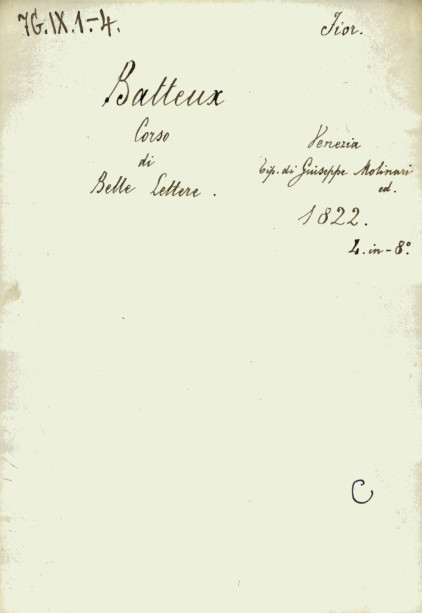 7G.IX.1-4.
Fior.
Batteux
Corso
di
Belle Lettere.
Venezia
Tip. di Giuseppe Molinari
ed.
1822.
4. in-8°.
C